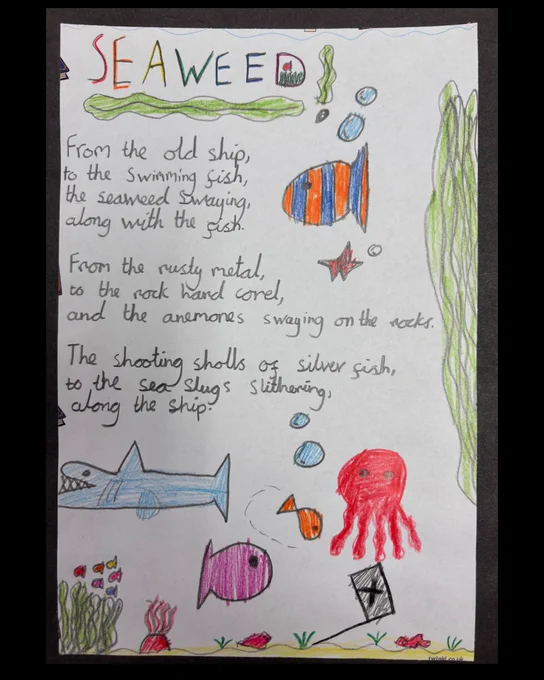 SEAWEED
From the old ship,
to the swimming fish,
the seaweed swaying,
along with the fish.
From the rusty metal,
to the rock hard corel,
and the anemones swaying on the rocks.
The shooting sholls of silver fish,
to the sea slugs slithering,
along the ship.
twinkl.co.uk